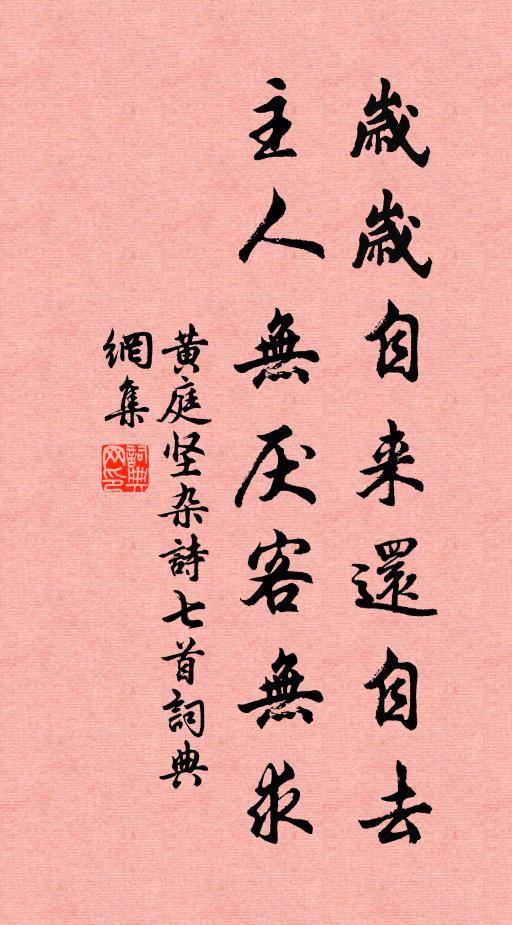 歲歲自来還自去
主人無厌客無求
黄庭坚杂詩七首詞典
網集
詞典
网印